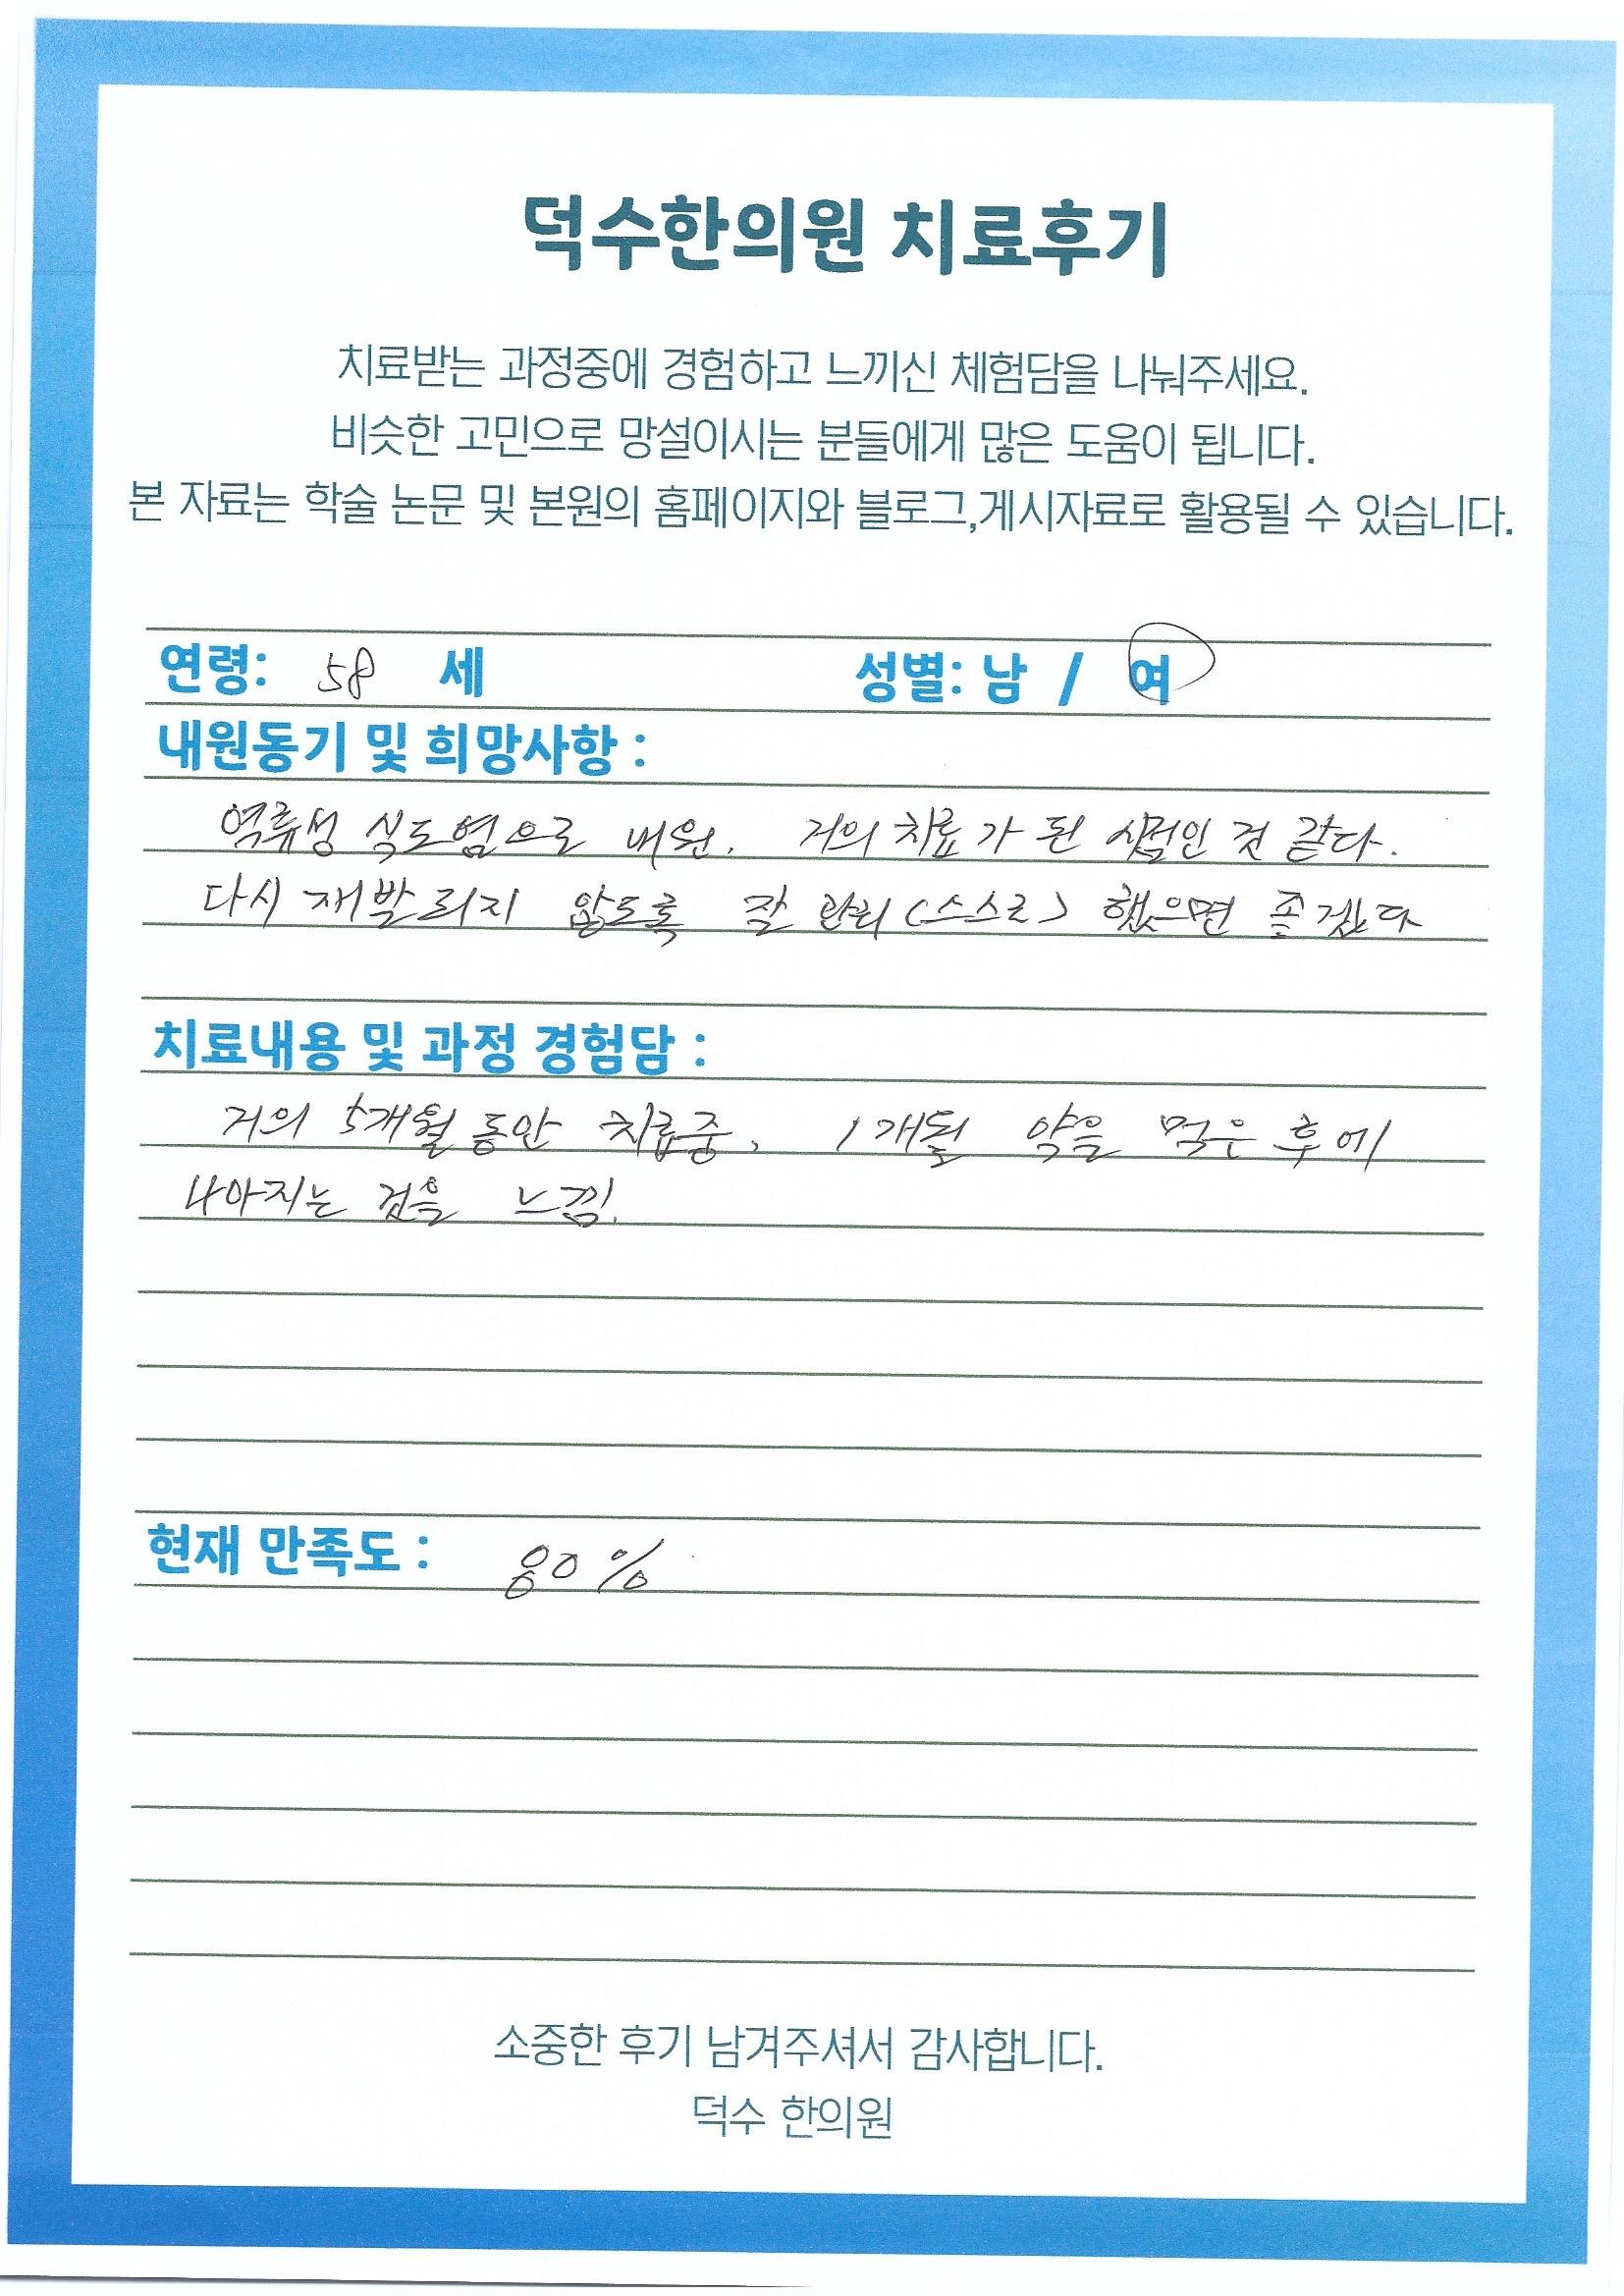 덕수한의원 치료후기
치료받는 과정중에 경험하고 느끼신 체험담을 나눠주세요.
비슷한 고민으로 망설이시는 분들에게 많은 도움이 됩니다.
본 자료는 학술 논문 및 본원의 홈페이지와 블로그,게시자료로 활용될 수 있습니다.
연령: 58 세 성별: 남 / 여
내원동기 및 희망사항 :
역류성 식도염으로 내원. 거의 치료가 된 시점인 것 같다.
다시 재발되지 않도록 잘 관리(스스로) 했으면 좋겠다
치료내용 및 과정 경험담 :
거의 5개월 동안 치료중, 1개월 약을 먹은 후에
나아지는 것을 느낌.
현재 만족도 : 80 %
소중한 후기 남겨주셔서 감사합니다.
덕수 한의원